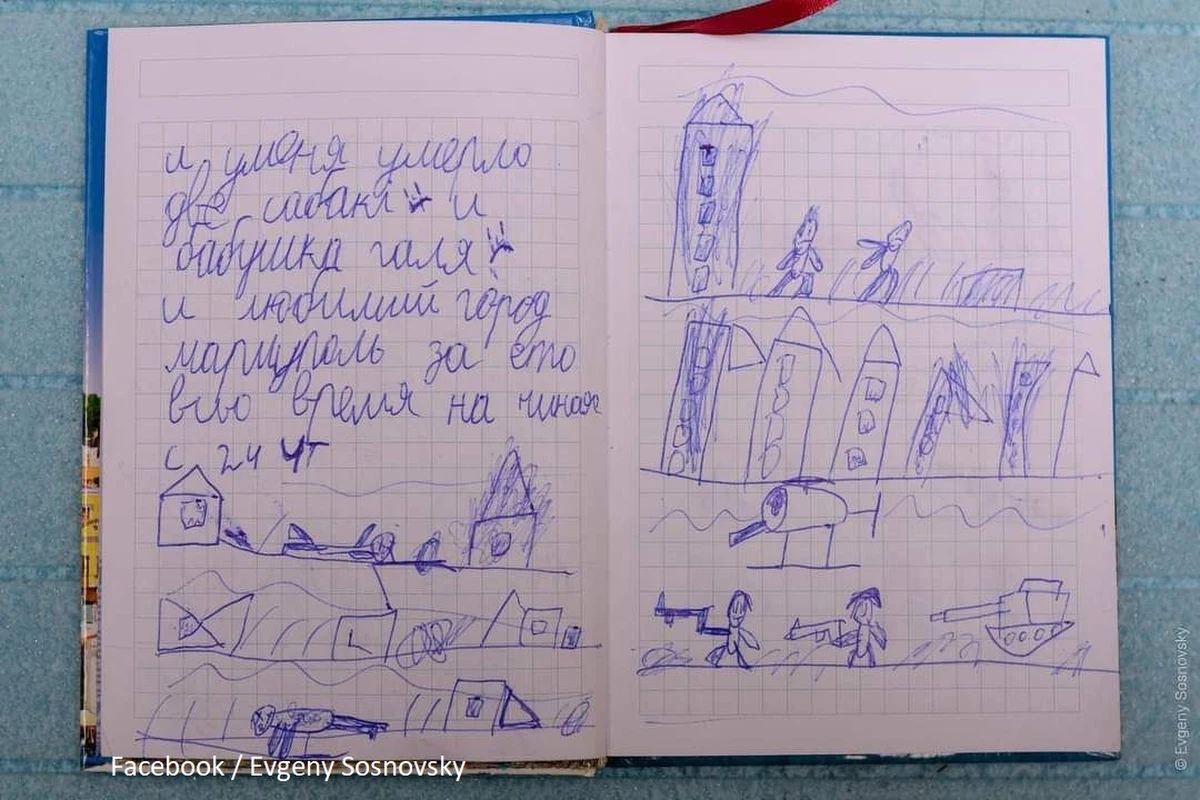 и уменя умерло
две сабаки и
бабушка галя
и любимий город
мариуполь за ето
всю время на чиная
с 24 чт
Facebook / Evgeny Sosnovsky
© Evgeny Sosnovsky